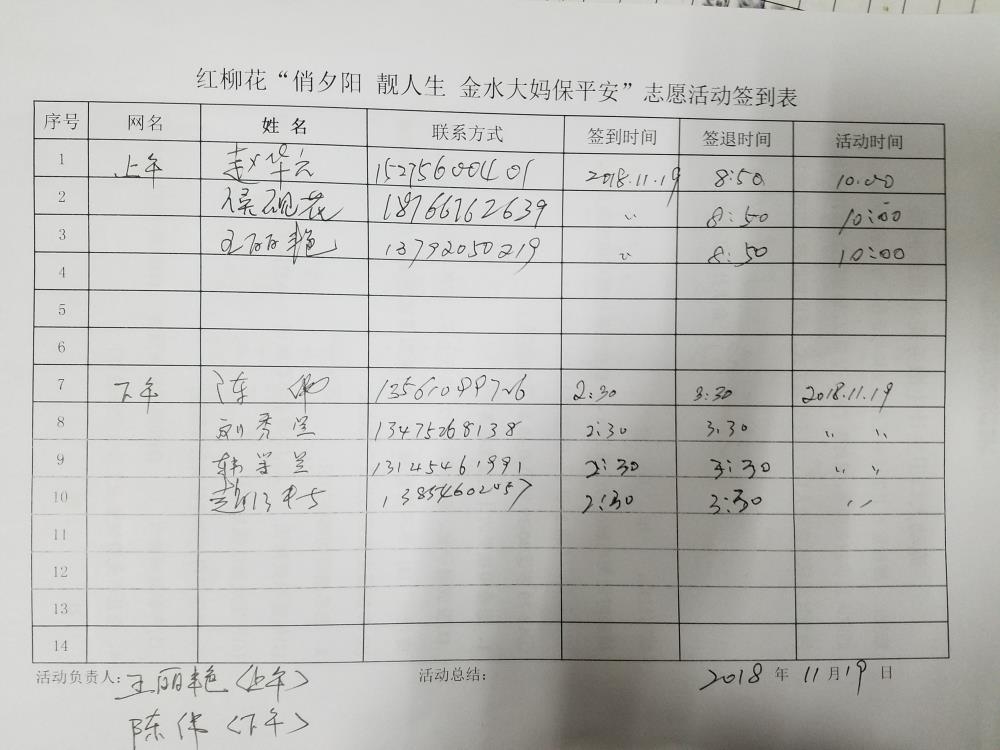 红柳花“俏夕阳 靓人生 金水大妈保平安”志愿活动签到表
序号 网名 姓 名 联系方式 签到时间 签退时间 活动时间
1 上午 赵华云 15275600401 2018.11.19 8:50 10:00
2 侯砚花 18766762639 〃 8:50 10:00
3 王丽艳 13792050219 〃 8:50 10:00
4
5
6
7 下午 陈伟 13561099726 2:30 3:30 2018.11.19
8 刘秀兰 13475268138 2:30 3.30 〃 〃
9 韩学兰 13145461991 2:30 3:30 〃 〃
10 13854602457 2:30 3:30 〃
11
12
13
14
活动负责人: 王丽艳(上午) 活动总结: 2018 年 11 月 19 日
陈伟(下午)